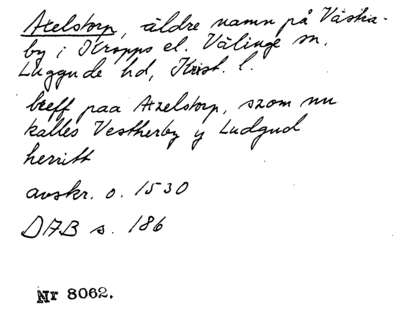 Atelstorp, äldre namn på Västra-
by i Kropps el. Välinge sn,
Luggude hd, Krist. l.
breff paa Atzelstorp, szom nu
kalles Vestherby y Ludgud
herritt
avskr. o. 1530
DAB s. 186
Nr 8062.